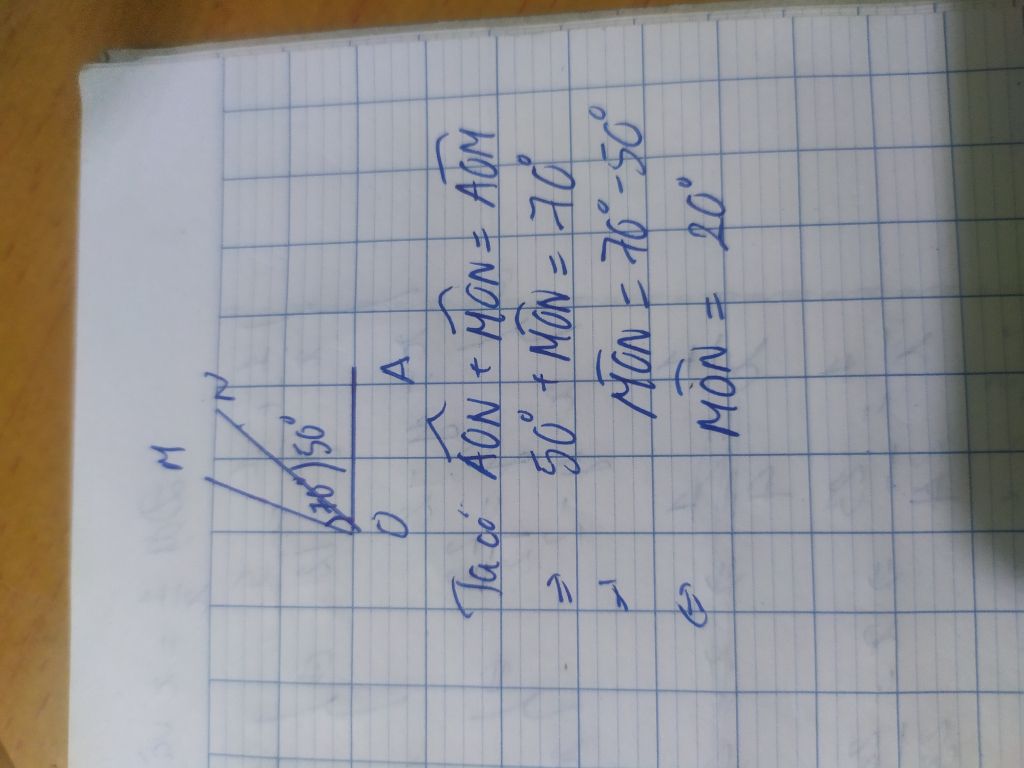 M
N
70° 50°
O A
Ta có AON + MON = AOM
⇒ 50° + MON = 70°
⇒ MON = 70° - 50°
⇔ MON = 20°